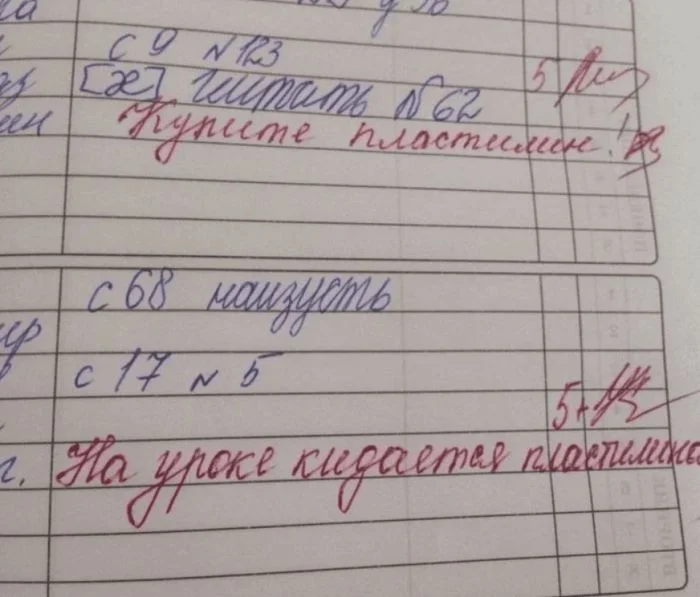 с 9 № 123
[х] читать № 62 5
Купите пластилин!
с 68 наизусть
с 17 № 5
5+
На уроке кидается пластилино